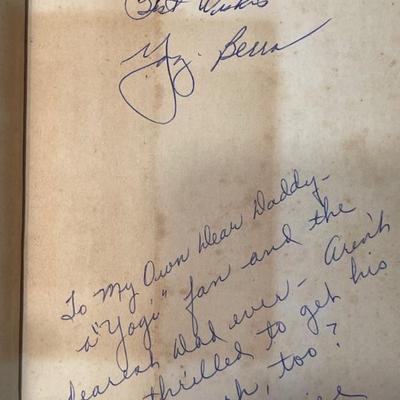 Best Wishes
Yogi Berra
To My Own Dear Daddy-
a "Yogi" fan and the
dearest Dad ever - Aren't
thrilled to get his
too?